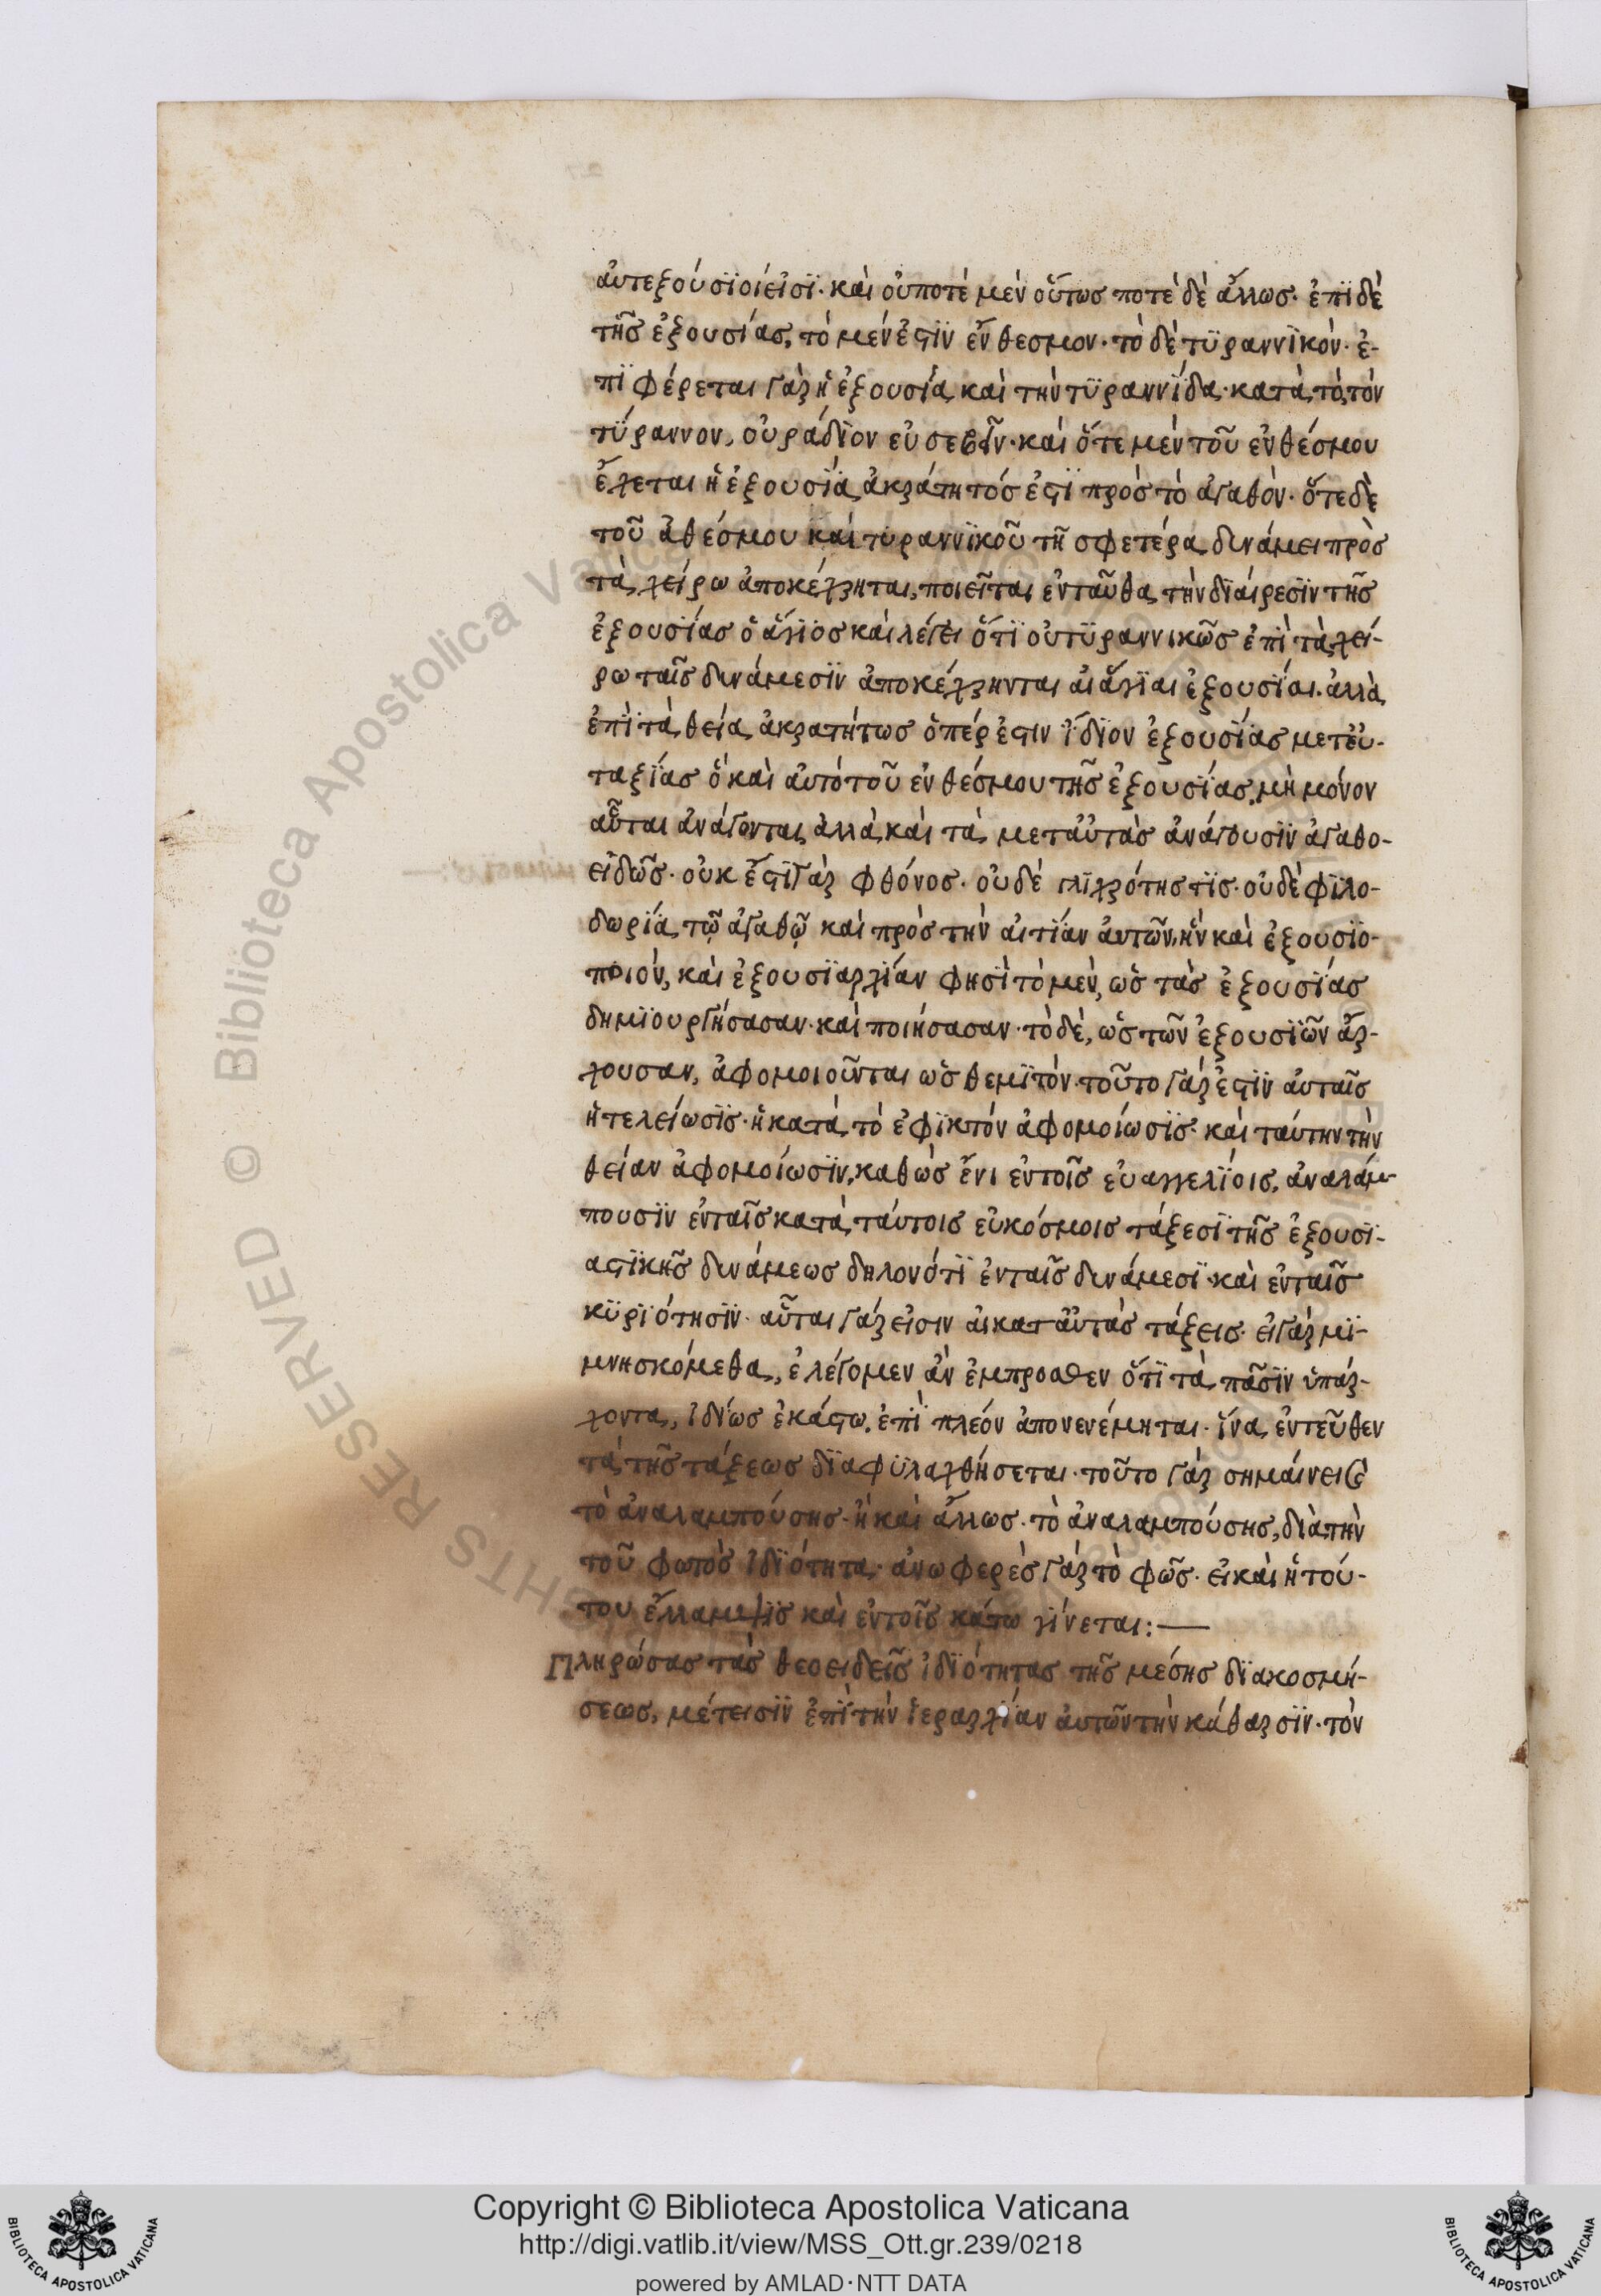 αὐτεξούσϊοί εἰσϊ· καὶ οὐ ποτὲ μὲν οὕτως ποτὲ δὲ ἄλλως· ἐπϊ δὲ
τῆς ἐξουσίας, τὸ μέν ἐστϊν ἔνθεσμον· τὸ δὲ τϋραννϊκόν· ἐ-
πϊφέρεται γὰρ ἡ ἐξουσία καὶ τὴν τϋραννίδα· κατὰ τὸ, τὸν
τύραννον, οὐ ράδϊον εὐσεβεῖν· καὶ ὅτε μὲν τοῦ ἐνθέσμου
ἔχεται ἡ ἐξουσία, ἀκράτητός ἐστϊ πρὸς τὸ ἀγαθόν· ὅτε δὲ
τοῦ ἀθέσμου καὶ τυραννϊκοῦ τῆ σφετέρα δυνάμει πρὸς
τὰ χείρω ἀποκέχρηται, ποιεῖται ἐνταῦθα τὴν δϊαίρεσϊν τῆς
ἐξουσίας ὁ ἅγϊος καὶ λέγει ὅτϊ οὐ τϋραννικῶς ἐπὶ τὰ χεί-
ρω ταῖς δυνάμεσϊν ἀποκέχρηνται αἱ ἅγϊαι ἐξουσίαι· ἀλλὰ
ἐπὶ τὰ θεῖα ἀκρατήτως ὅπερ ἐστιν ἴδϊον ἐξουσίας μετ' εὐ-
ταξίας ὃ καὶ αὐτὸ τοῦ ἐνθέσμου τῆς ἐξουσίας, μὴ μόνον
αὗται ἀνάγονται, ἀλλὰ καὶ τὰ μετ' αὐτὰς ἀνάγουσϊν ἀγαθο-
εϊδῶς· οὐκ ἔστϊ γὰρ φθόνος· οὐδὲ γλϊχρότης τϊς· οὐδὲ φϊλο-
δωρία τῷ ἀγαθῷ καὶ πρὸς τὴν αἰτίαν αὐτῶν, ἣν καὶ ἐξουσϊο-
ποιόν, καὶ ἐξουσϊαρχίαν φησὶ τὸ μὲν, ὡς τὰς ἐξουσίας
δημϊουργήσασαν· καὶ ποιήσασαν· τὸ δὲ, ὡς τῶν ἐξουσϊῶν ἄρ-
χουσαν, ἀφομοιοῦνται ὡς θεμϊτόν· τοῦτο γάρ ἐστϊν αὐταῖς
ἡ τελείωσϊς· ἡ κατὰ τὸ ἐφϊκτὸν ἀφομοίωσϊς· καὶ ταύτην τὴν
θείαν ἀφομοίωσϊν, καθὼς ἔνι ἐν τοῖς εὐαγγελίοις, ἀναλάμ-
πουσϊν ἐν ταῖς κατὰ ταύτοις εὐκόσμοις τάξεσϊ τῆς ἐξουσϊ-
αστϊκῆς δυνάμεως δηλονότϊ ἐν ταῖς δυνάμεσϊ· καὶ ἐν ταῖς
κϋρϊότησϊν· αὗται γάρ εἰσιν αἱ κατ' αὐτὰς τάξεις· εἰ γὰρ μϊ-
μνησκόμεθα, ἐλέγομεν ἂν ἔμπροσθεν ὅτϊ τὰ πᾶσϊν ὑπάρ-
χοντα, ἰδίως ἑκάστω ἐπὶ πλέον ἀπονενέμηται· ἵνα ἐντεῦθεν
τὰ τῆς τάξεως δϊαφϋλαχθήσεται· τοῦτο γὰρ σημαίνει καὶ
τὸ ἀναλαμπούσης· ἢ καὶ ἄλλως· τὸ ἀναλαμπούσης, δϊὰ τὴν
τοῦ φωτὸς ἰδϊότητα· ἀνωφερὲς γὰρ τὸ φῶς· εἰ καὶ ἡ τού-
του ἔλλαμψϊς καὶ ἐν τοῖς κάτω γίνεται:—
Πληρώσας τὰς θεοειδεῖς ἰδϊότητας τῆς μέσης δϊακοσμή-
σεως, μέτεισϊν ἐπὶ τὴν ἱεραρχίαν αὐτῶν τὴν κάθαρσϊν· τὸν
Copyright © Biblioteca Apostolica Vaticana
http://digi.vatlib.it/view/MSS_Ott.gr.239/0218
powered by AMLAD·NTT DATA
BIBLIOTECA APOSTOLICA VATICANA
BIBLIOTECA APOSTOLICA VATICANA